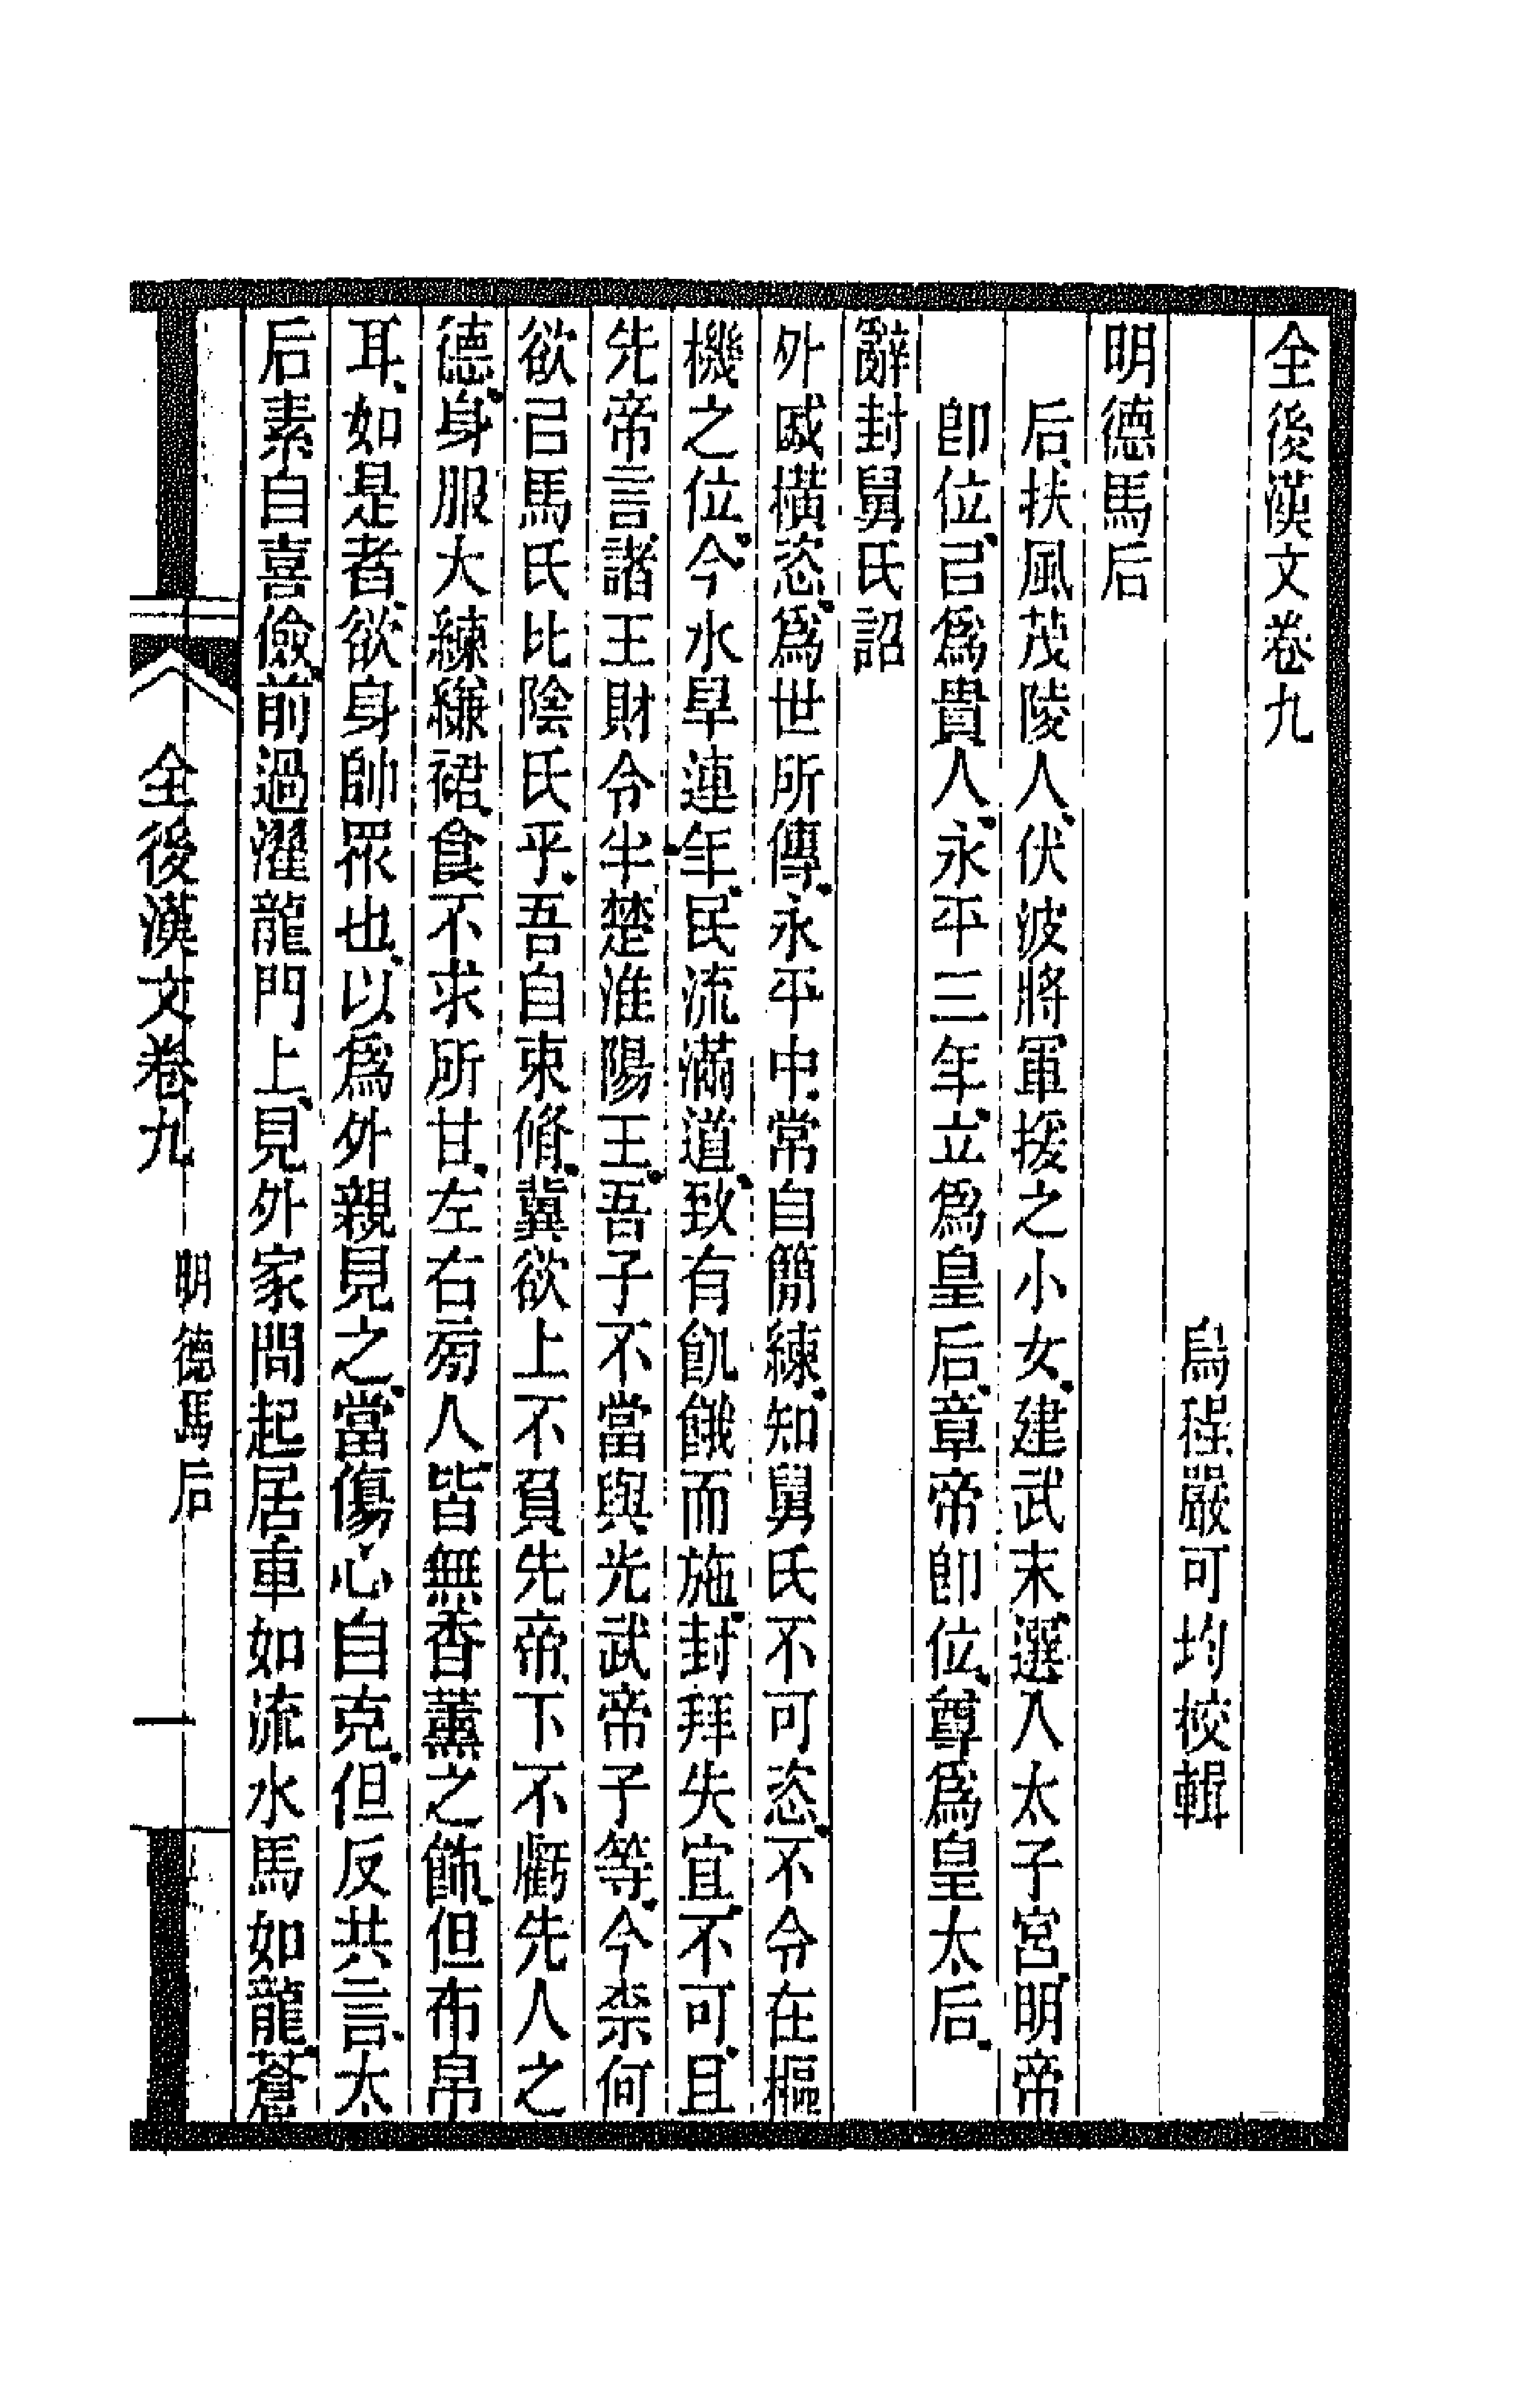 全後漢文卷九
烏程嚴可均校輯
明德馬后
后扶風茂陵人伏波將軍援之小女建武末選入太子宮明帝
卽位㠯爲貴人永平三年立爲皇后章帝卽位尊爲皇太后
辭封舅氏詔
外戚橫恣爲世所傳永平中常自簡練知舅氏不可恣不令在樞
機之位今水旱連年民流滿道致有飢餓而施封拜失宜不可且
先帝言諸王財令半楚淮陽王吾子不當與光武帝子等今柰何
欲㠯馬氏比陰氏乎吾自束脩冀欲上不負先帝下不虧先人之
德身服大練縑裙食不求所甘左右㫄人皆無香薰之飾但布帛
耳如是者欲身帥眾也以爲外親見之當傷心自克但反共言太
后素自喜儉前過濯龍門上見外家問起居車如流水馬如龍蒼
全後漢文卷九 明德馬后 一